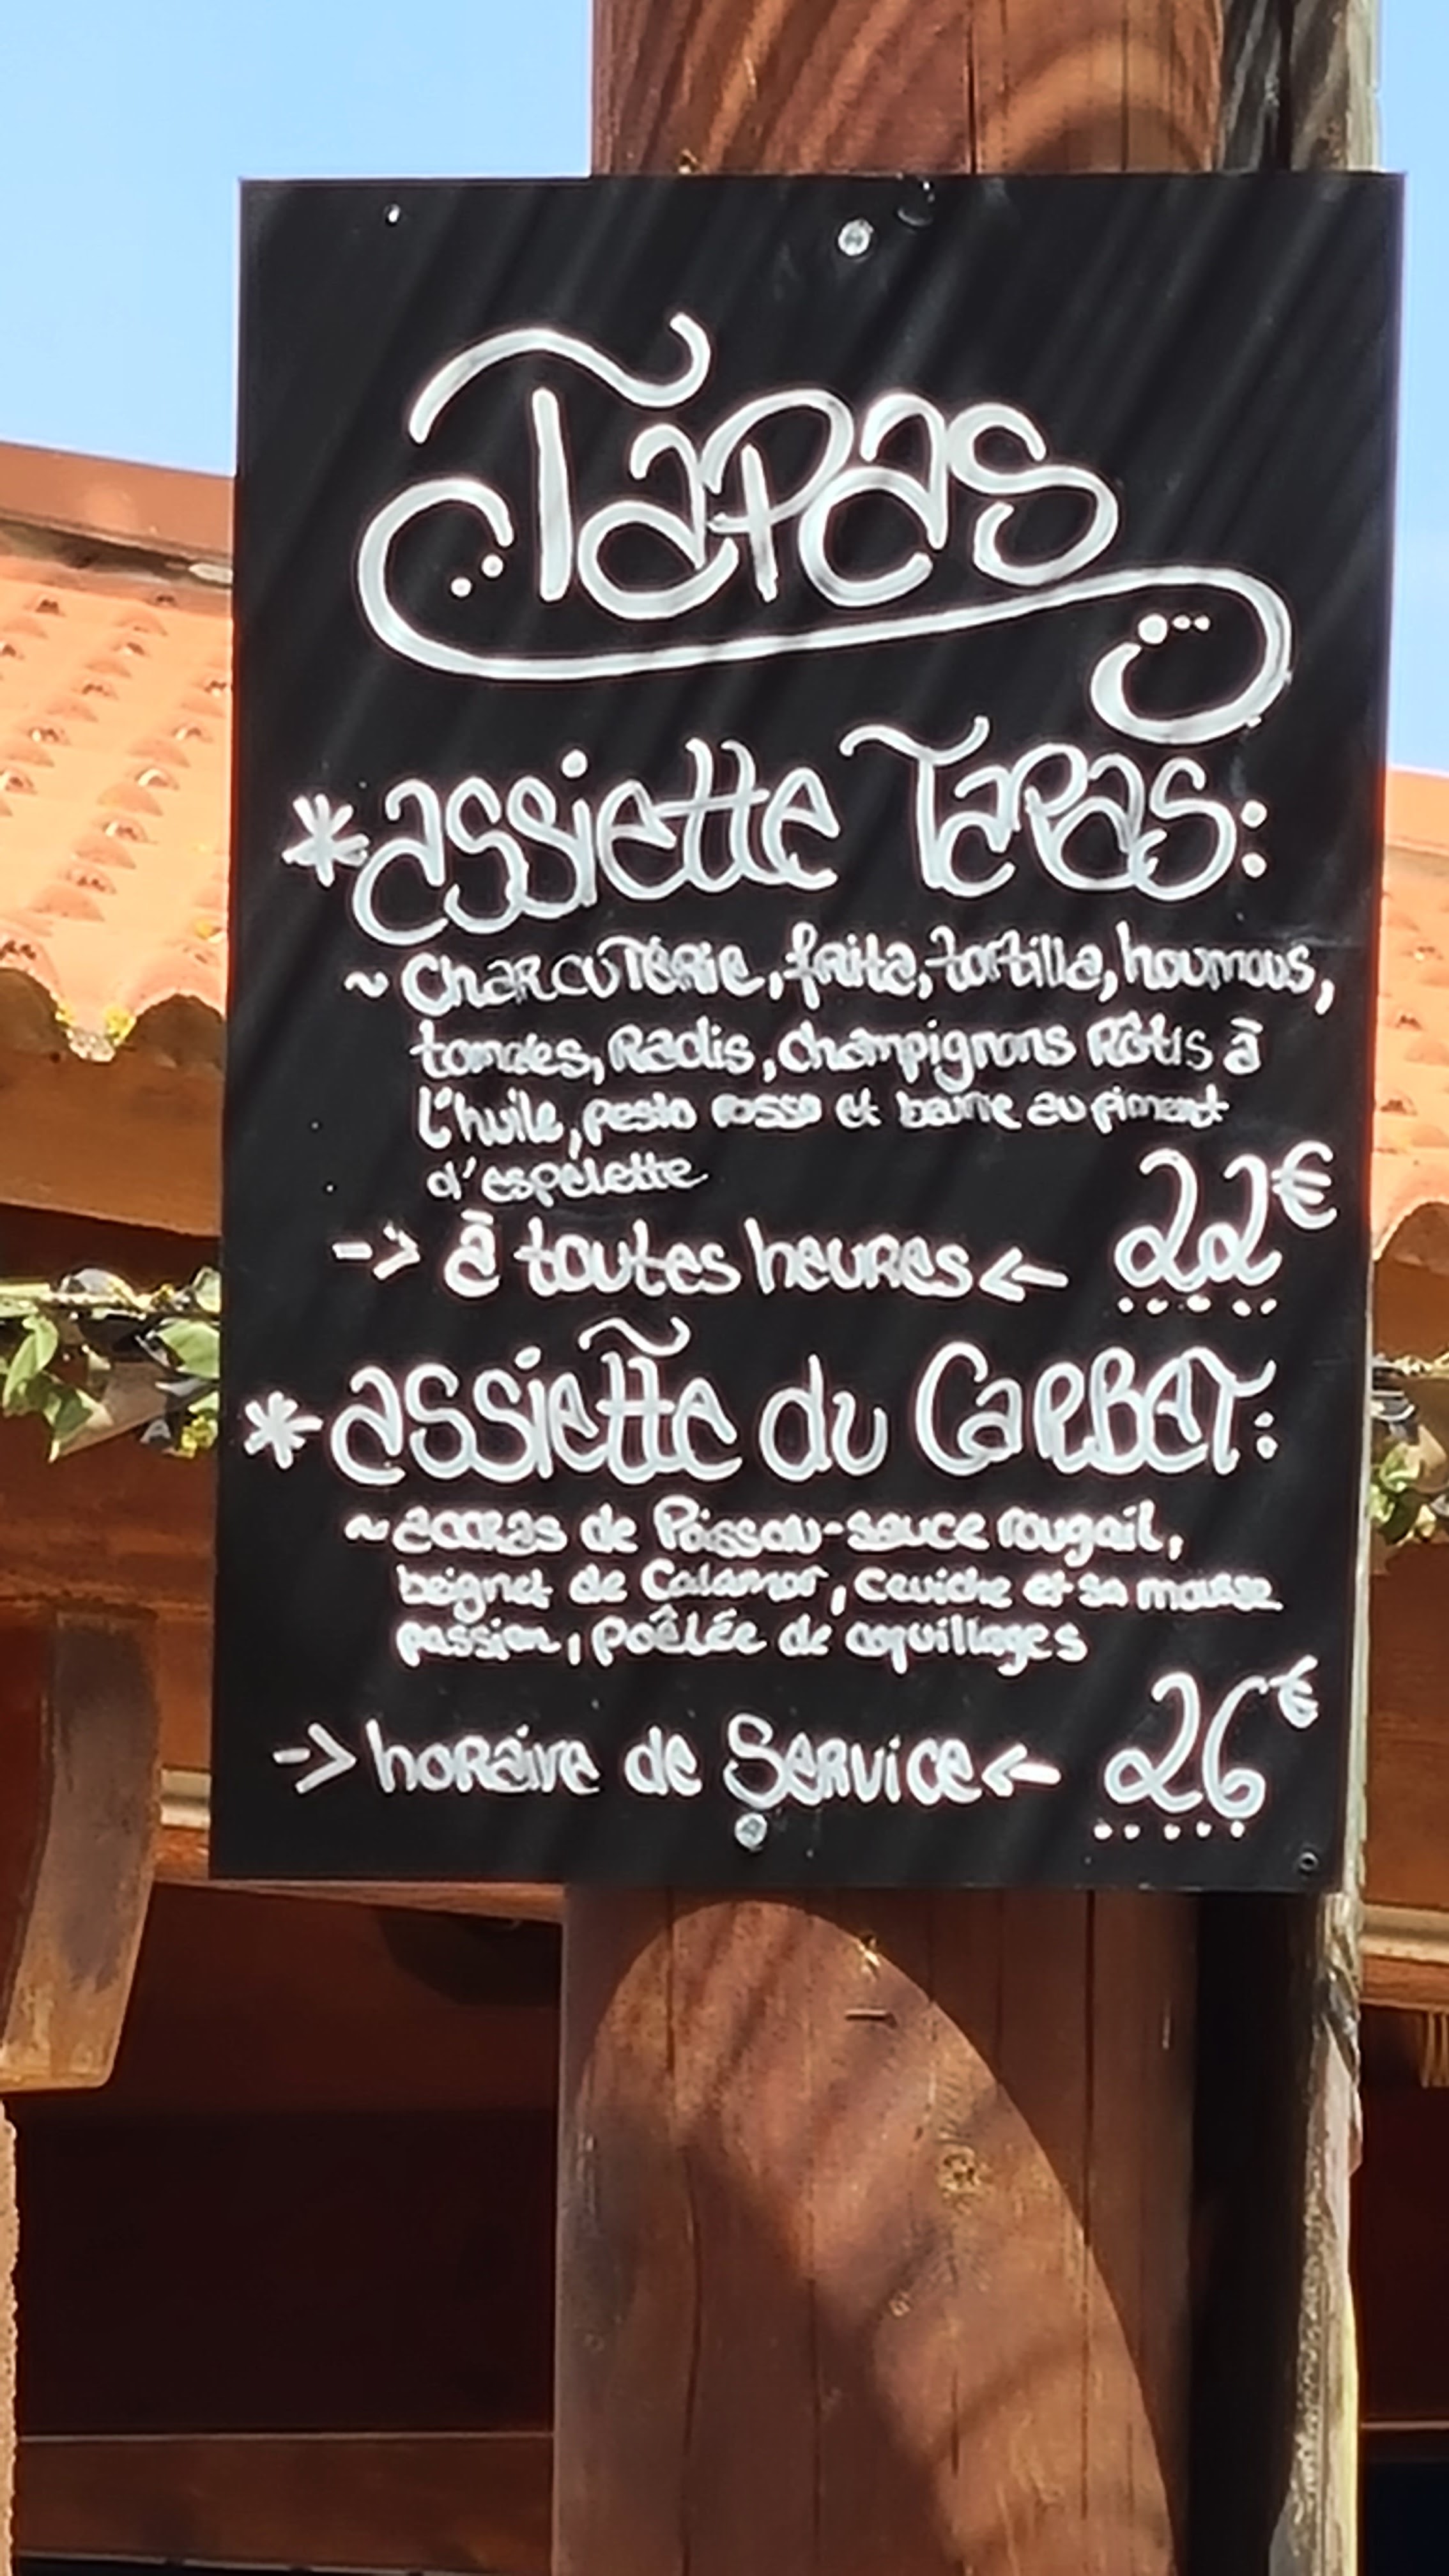 Tapas
* assiette Tapas:
~ Charcuterie, frita, tortilla, houmous,
tomates, Radis, champignons Rôtis à
l'huile, pesto rosso et beurre au piment
d'espelette
-> à toutes heures <- 22€
* assiette du Carbet:
~ accras de Poisson-sauce rougail,
beignet de Calamar, Ceviche et sa mousse
passion, poêlée de coquillages
-> horaire de Service <- 26€